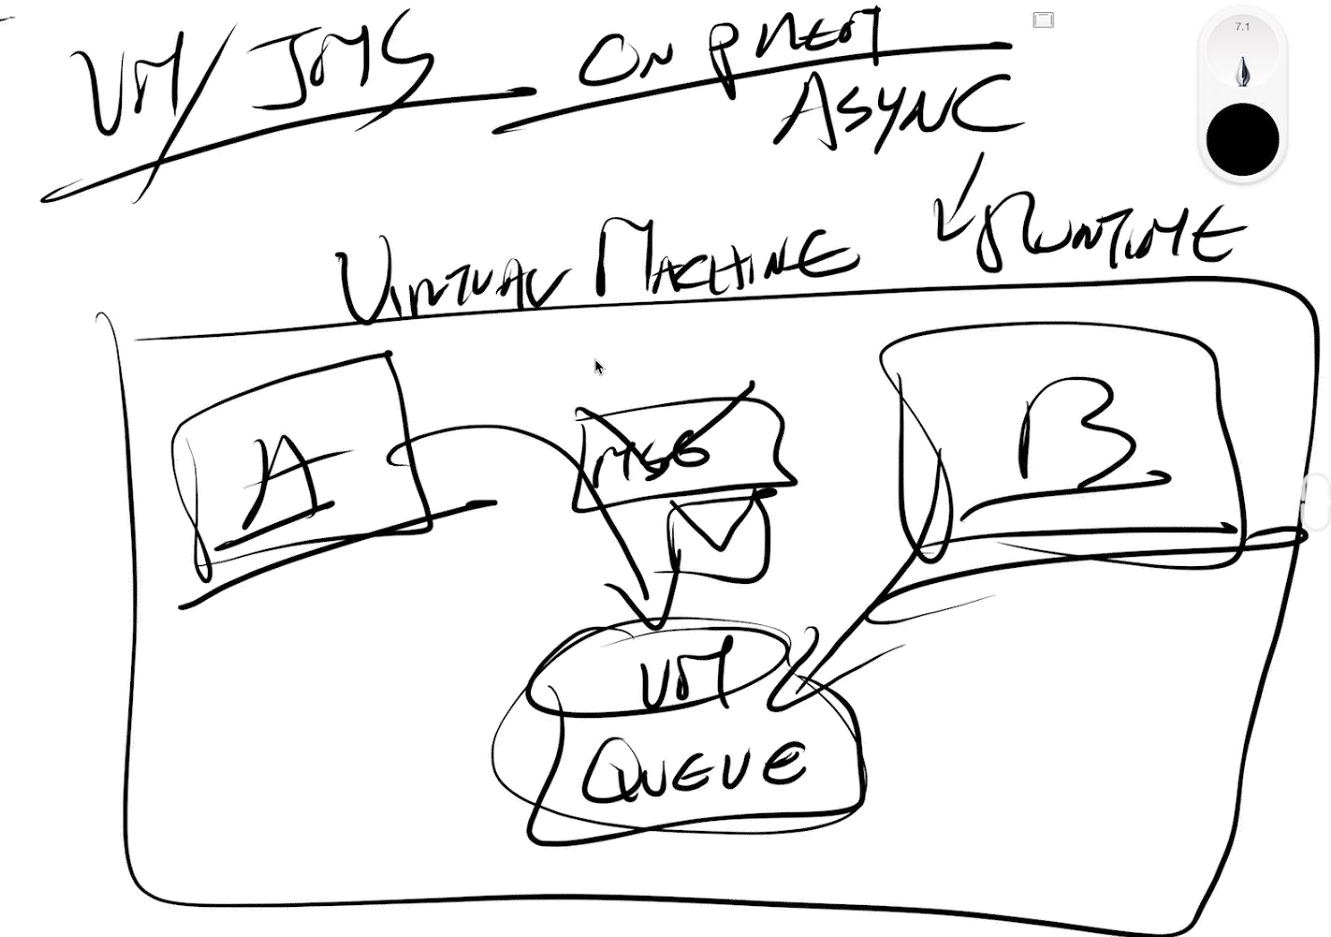 VM/JMS ON PREM
7.1
ASYNC
VIRTUAL MACHINE RUNTIME
A MSG B
VM
QUEUE